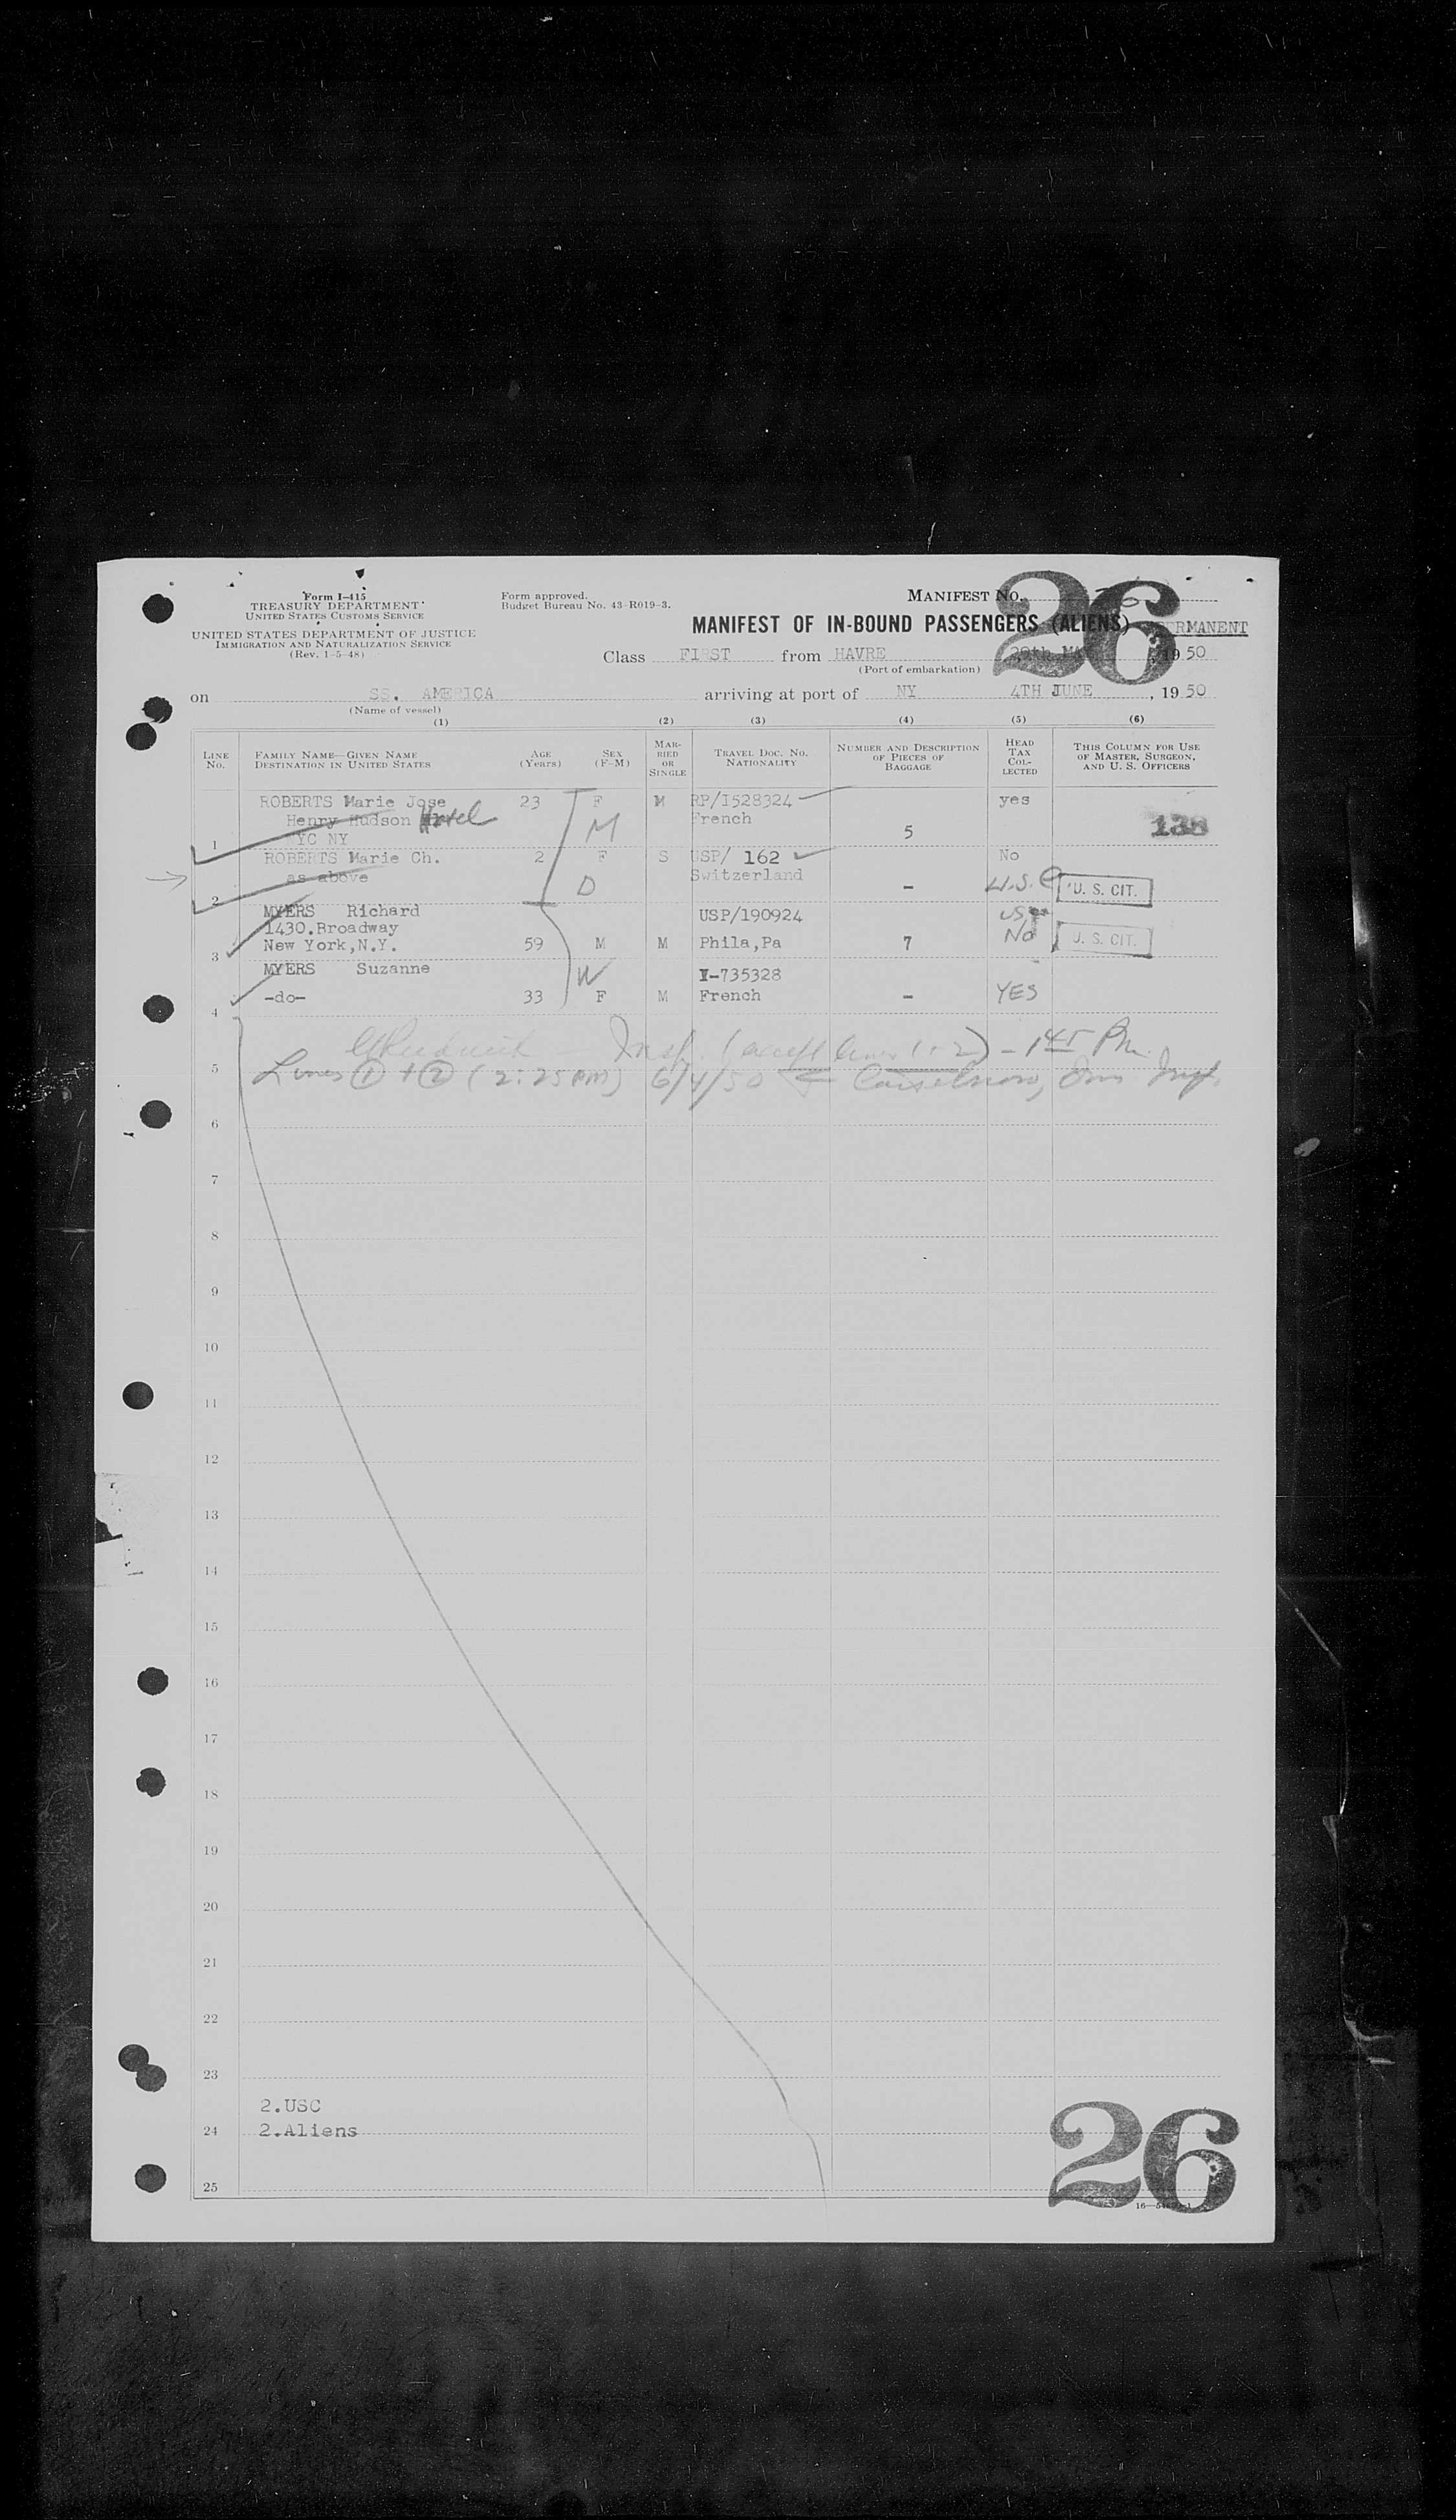 Form I-415
TREASURY DEPARTMENT
UNITED STATES CUSTOMS SERVICE
UNITED STATES DEPARTMENT OF JUSTICE
IMMIGRATION AND NATURALIZATION SERVICE
(Rev. 1-5-48)
Form approved.
Budget Bureau No. 43-R019-3.
MANIFEST NO. 26
26
MANIFEST OF IN-BOUND PASSENGERS (ALIENS) PERMANENT
Class FIRST from HAVRE 1950
(Port of embarkation)
on SS. AMERICA arriving at port of NY 4TH JUNE, 1950
(Name of vessel)
(1) (2) (3) (4) (5) (6)
LINE NO. FAMILY NAME—GIVEN NAME DESTINATION IN UNITED STATES AGE (Years) SEX (F-M) MARRIED OR SINGLE TRAVEL DOC. NO. NATIONALITY NUMBER AND DESCRIPTION OF PIECES OF BAGGAGE HEAD TAX COLLECTED THIS COLUMN FOR USE OF MASTER, SURGEON, AND U. S. OFFICERS
ROBERTS Marie Jose 23 F M RP/I528324 yes
Henry Hudson Hotel M French
1 YC NY 5 138
ROBERTS Marie Ch. 2 F S USP/ 162 No
as above D Switzerland - U.S.C U. S. CIT.
2
MYERS Richard USP/190924
1430.Broadway
3 New York,N.Y. 59 M M Phila,Pa 7 No U. S. CIT.
MYERS Suzanne W V-735328
4 -do- 33 F M French - YES
Insp. (except lines 1+2) - 1 45 PM.
5 Lines 1 + 2 (2:25 PM) 6/4/50 Insp.
6
7
8
9
10
11
12
13
14
15
16
17
18
19
20
21
22
23
2.USC
24 2.Aliens
25
26